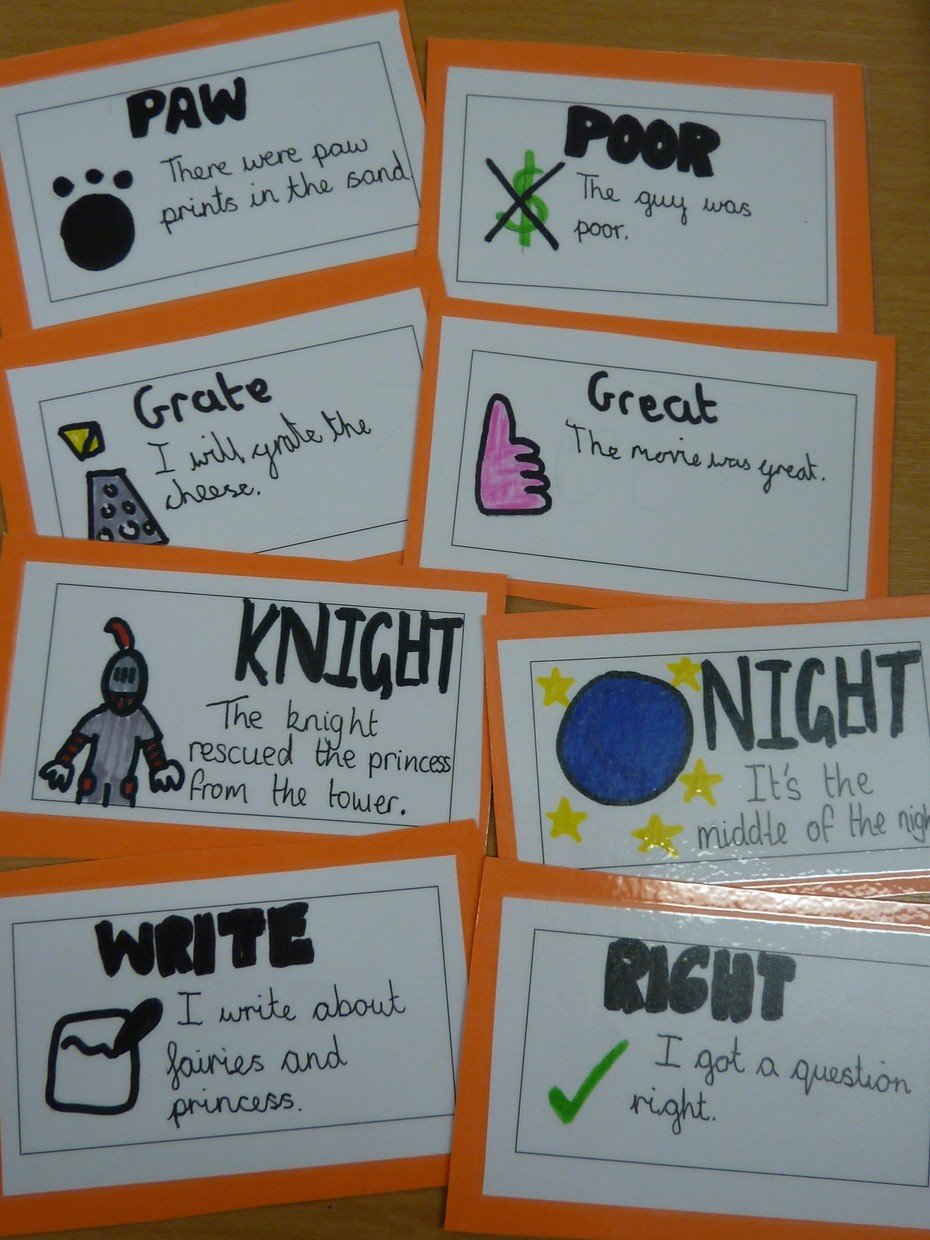 PAW
There were paw
prints in the sand
POOR
The guy was
poor.
Grate
I will grate the
cheese.
Great
The movie was great.
KNIGHT
The knight
rescued the princess
from the tower.
NIGHT
It's the
middle of the nigh
WRITE
I write about
fairies and
princess.
RIGHT
I got a question
right.